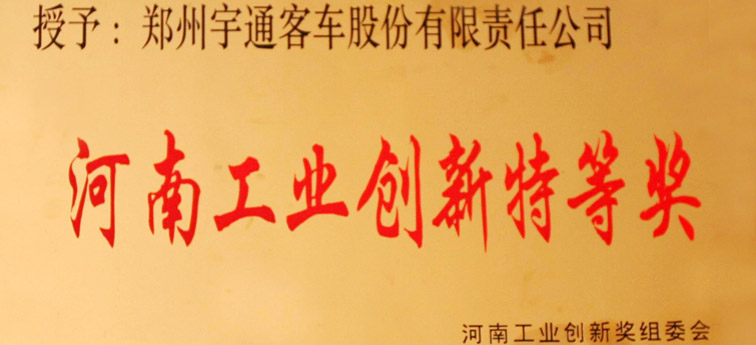 授予：郑州宇通客车股份有限责任公司
河南工业创新特等奖
河南工业创新奖组委会